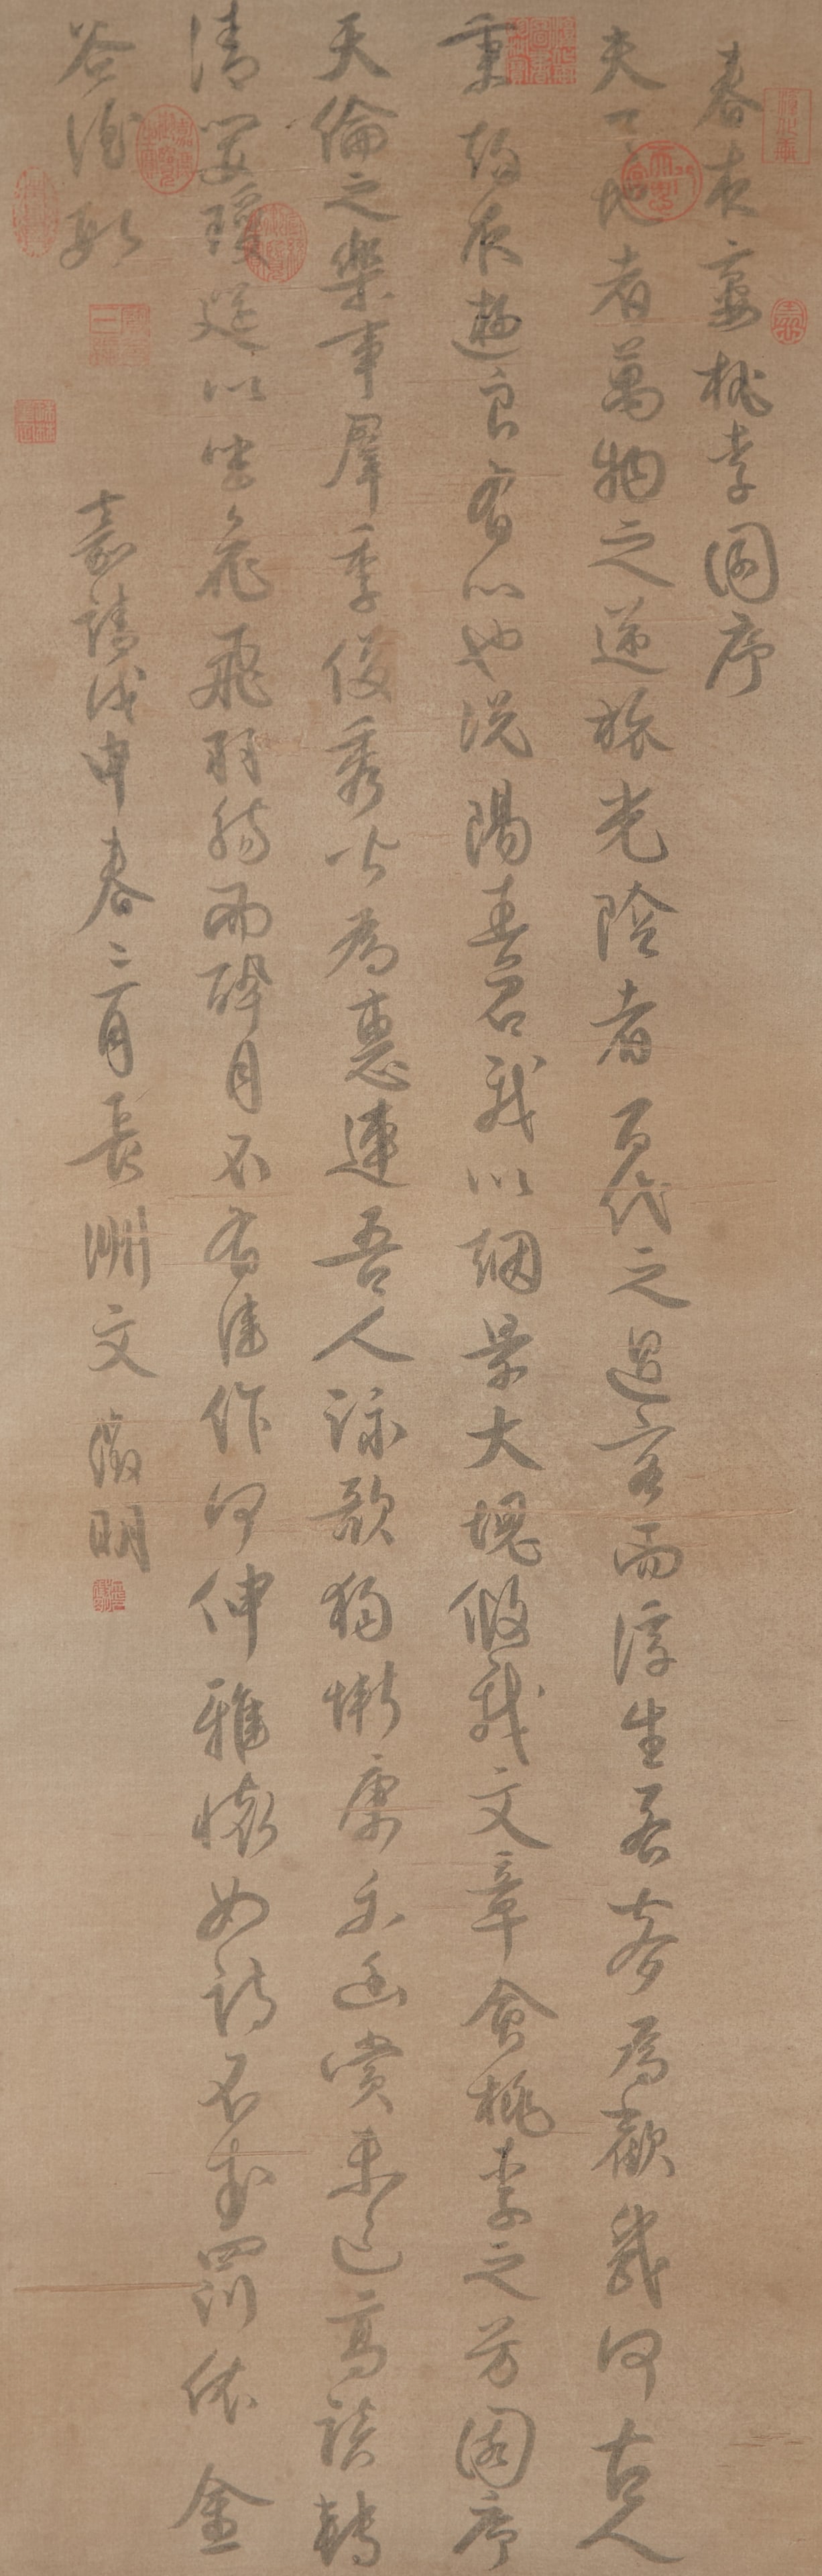 春夜宴桃李園序
夫天地者萬物之逆旅光陰者百代之過客而浮生若夢為歡幾何古人
秉燭夜遊良有以也況陽春召我以烟景大塊假我文章會桃李之芳園序
天倫之樂事羣季俊秀皆為惠連吾人詠歌獨慚康樂幽賞未已高談轉
清開瓊筵以坐花飛羽觴而醉月不有佳作何伸雅懷如詩不成罰依金
谷酒數
嘉靖戊申春二月長洲文徵明